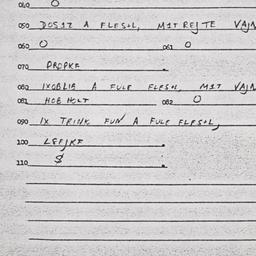 040 O
050 DOSIZ A FLES+L, MIT REJTE VAJN
060 O 061 O
070 DROPKE .
080 IXOBLIB A FULE FLES+L, MIT VAJN
081 HOB HOLT 082 O
090 IX TRINK FUN A FULE FLES+L,
100 LEFJKE .
110 $ .